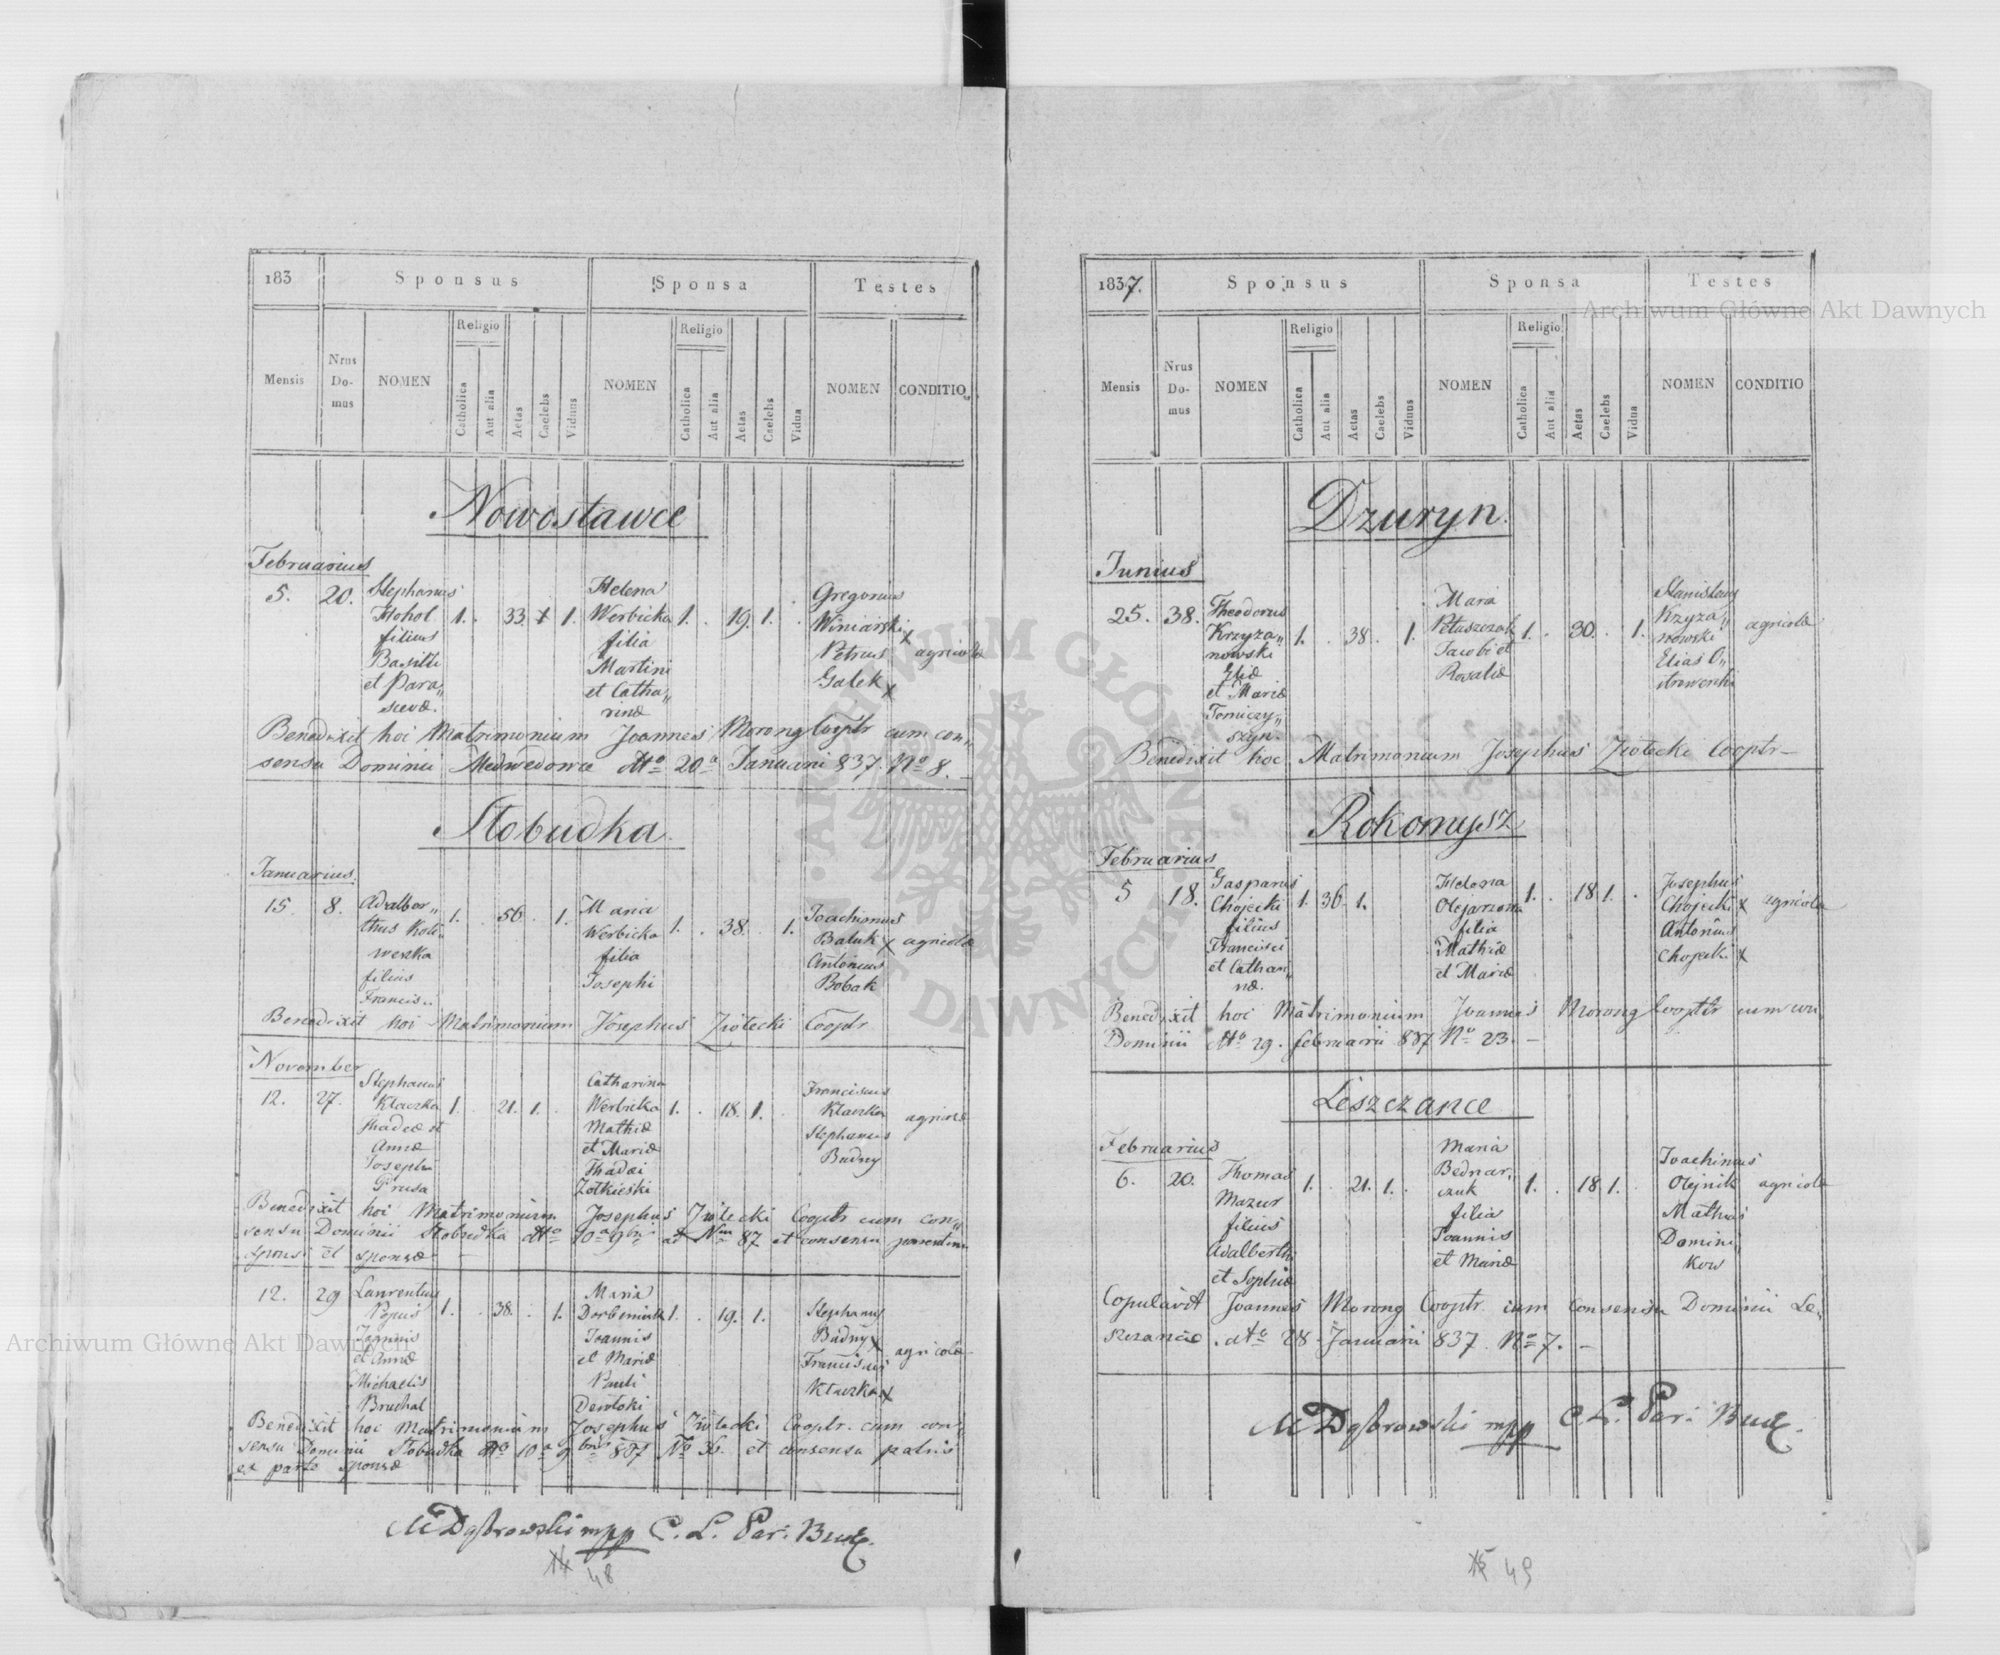 183 Sponsus Sponsa Testes
Mensis Nrus Domus NOMEN Religio Catholica Aut alia Aetas Caelebs Viduus NOMEN Religio Catholica Aut alia Aetas Caelebs Vidua NOMEN CONDITIO
Nowostawce
Februarius
5. 20.
Stephanus
Hohol
filius
Basilii
et Para„
scevæ.
1. 33 1.
Helena
Werbicka
filia
Martini
et Catha„
rinæ
1. 19. 1.
Gregorius
Winiarski x
Petrus
Galek x
agricolæ
Benedixit hoc Matrimonium Joannes Morong Cooptr cum con„
sensu Dominii Medwedowce dto 20a Januarii 837. No 8.
Slobudka
Januarius
15. 8.
Adalber„
thus
filius
Francis..
1. 56. 1.
Maria
Werbicka
filia
Josephi
1. 38. 1.
Joachimus
Baluk x
Antonius
Bobak
agricolæ
Benedixit hoc Matrimonium Josephus Ziołecki Cooptr
November
12. 27.
Stephanus
Klaczka
Thadeæ et
Annæ
Josephi
Prusa
1. 21. 1.
Catharina
Werbicka
Mathiæ
et Mariæ
Thadæi
Zotkieski
1. 18. 1.
Franciscus
Klaczka
Stephanus
Budny
agricolæ
Benedixit hoc Matrimonium Josephus Ziołecki Cooptr cum con„
sensu Dominii Slobudka dto 10a 9bris ad Nm 87 et consensu parentum
sponsi et sponsæ
12. 29
Laurentius
Joannis
et Annæ
Michaelis
Bruchal
1. 38. 1.
Maria
Joannis
et Mariæ
Pauli
1. 19. 1.
Stephanus
Budny x
Franciscus
Klaczka x
agricolæ
Benedixit hoc Matrimonium Josephus Ziołecki Cooptr. cum con„
sensu Dominii Slobudka dto 10a 9bris 837 No 36. et consensu patris
ex parte sponsæ
M Dąbrowski mpp C. L. Par: Bucz.
48
1837. Sponsus Sponsa Testes
Mensis Nrus Domus NOMEN Religio Catholica Aut alia Aetas Caelebs Viduus NOMEN Religio Catholica Aut alia Aetas Caelebs Vidua NOMEN CONDITIO
Dzuryn.
Junius
25. 38.
Theodorus
Krzyza„
nowski
Eliæ
et Mariæ
Tomiczy„
szyn.
1. 38. 1.
Maria
Petuszczak
Jacobi et
Rosaliæ
1. 30. 1.
Stanislaus
Krzyza„
nowski
Elias O„
strowerski
agricolæ
Benedixit hoc Matrimonium Josephus Ziołecki Cooptr
Rokomysz
Februarius
5 18.
Gasparus
Chojecki
filius
Francisci
et Cathari„
næ.
1. 36. 1.
Helena
Olejarzona
filia
Mathiæ
et Mariæ
1. 18 1.
Josephus
Chojecki x
Antonius
Chojecki x
agricolæ
Benedixit hoc Matrimonium Joannes Morong Cooptr cum con„
Dominii dto 29. februarii 837 No 23.
Leszczance
Februarius
6. 20.
Thomas
Mazur
filius
Adalberthi
et Sophiæ
1. 21. 1.
Maria
Bednar„
czuk
filia
Joannis
et Mariæ
1. 18 1.
Joachimus
Olejnik
Mathias
Domini„
kow
agricolæ
Copulavit Joannes Morong Cooptr. cum Consensu Dominii Le„
szczance. dto 28 Januarii 837. No 7.
M Dąbrowski mpp C. L. Par: Bucz.
49
Archiwum Główne Akt Dawnych
Archiwum Główne Akt Dawnych
ARCHIWUM GŁÓWNE AKT DAWNYCH